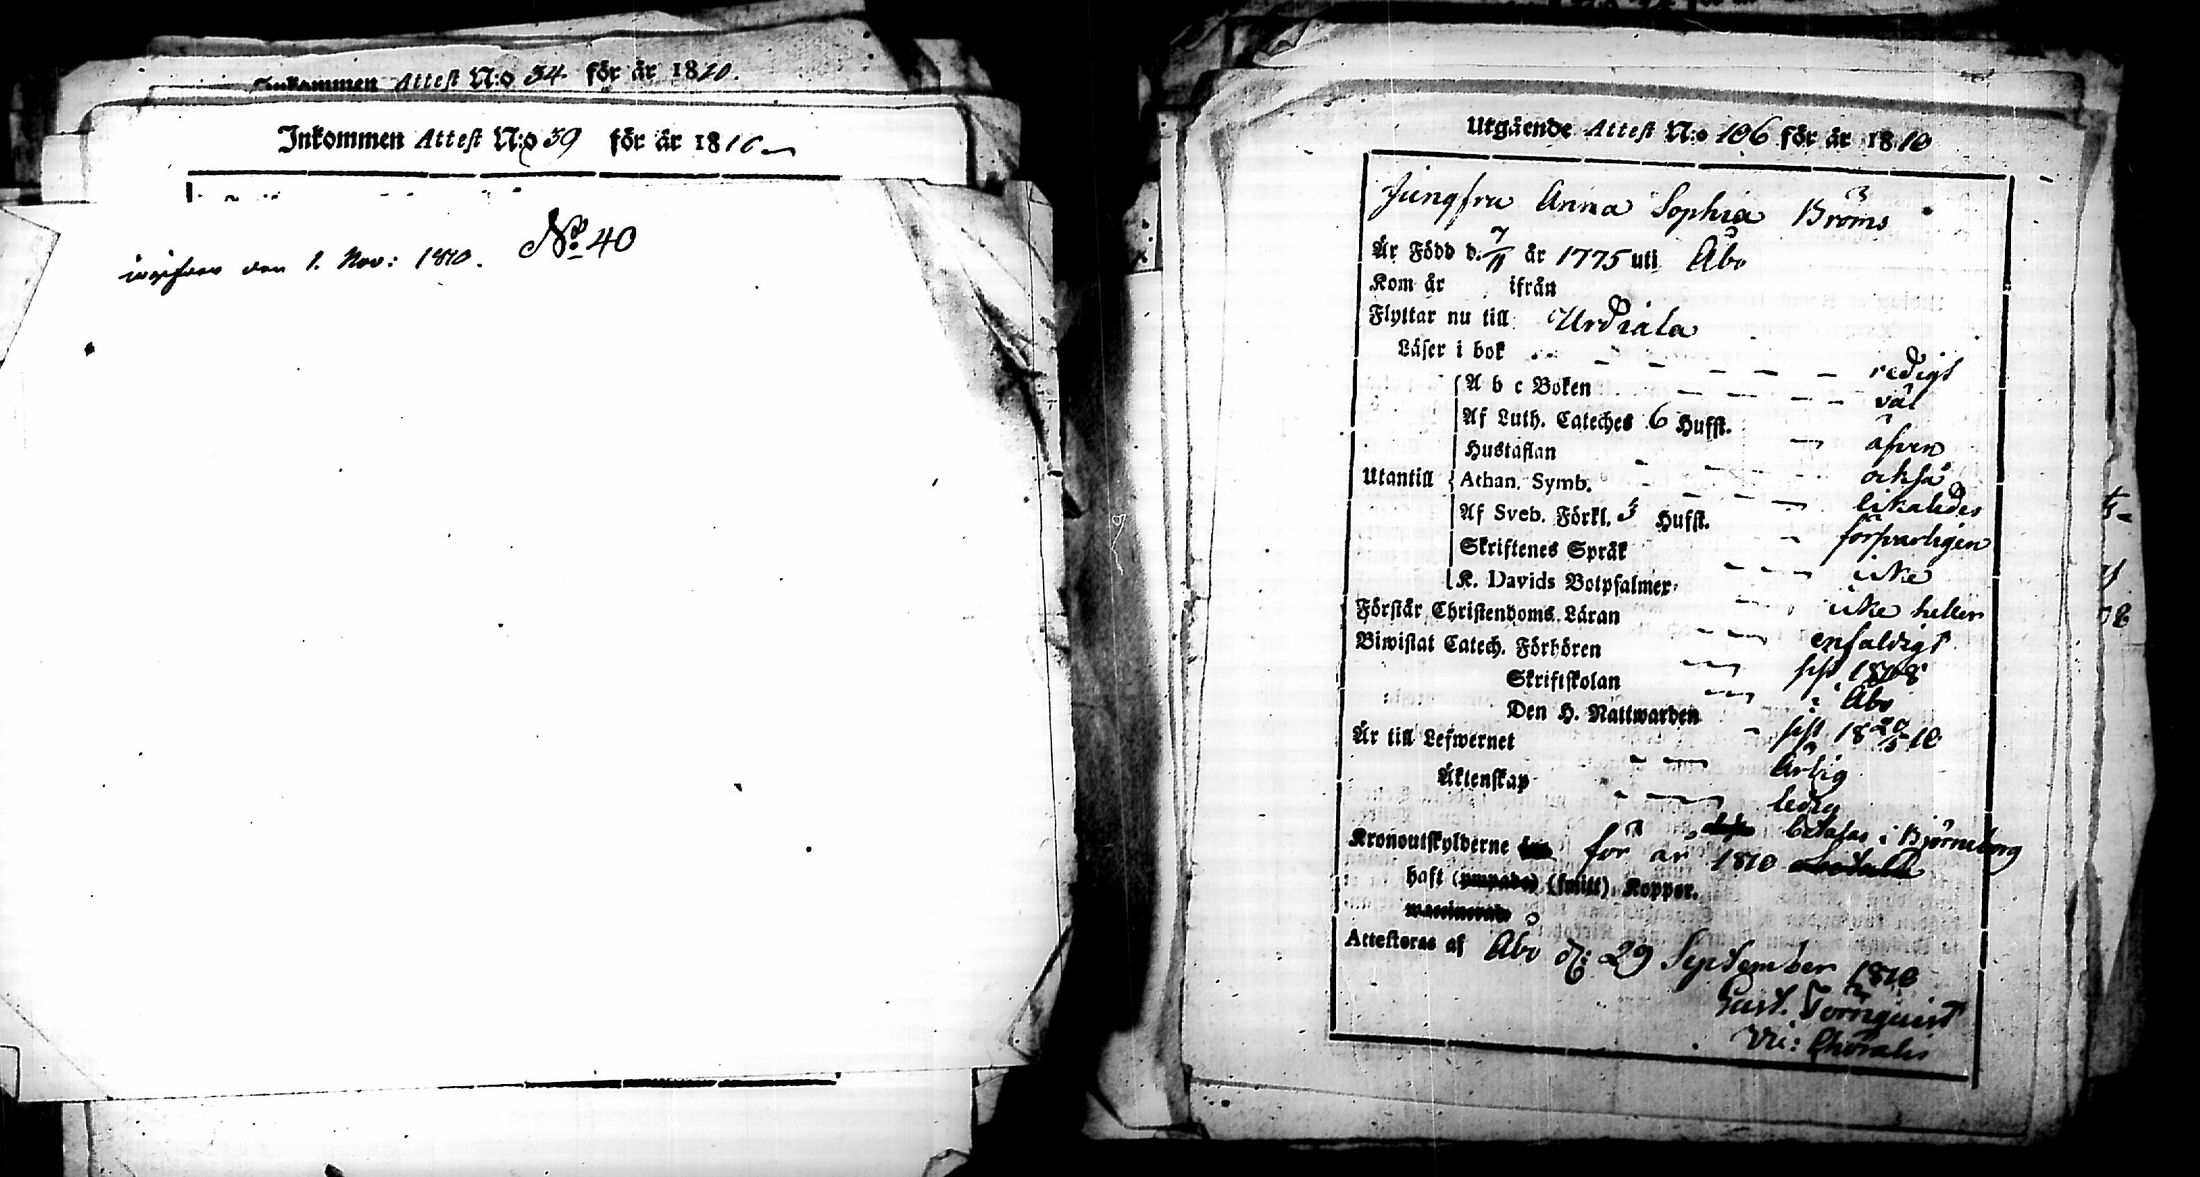 Inkommen Attest N:o 54 för år 1810.
Inkommen Attest N:o 39 för år 1810
N:o 40
den 1. Nov: 1810.
Utgående Attest N:o 106 för år 1810
Jungfru Anna Sophia Broms
Är Född d. 7/11 år 1775 uti Åbo
Kom år ifrån
Flyttar nu till Urdiala
Läser i bok redigt
A b c Boken väl
Af Luth. Cateches 6 Hufst. äfven
Hustaflan också
Utantill Athan. Symb. likaledes
Af Sveb. Förkl. 5 Hufst. försvarligen
Skriftenes Språk icke
K. Davids Botpsalmer icke heller
Förstår Christendoms Läran enfaldigt
Biwistat Catech. Förhören sist 1808
Skriftskolan i Åbo
Den H. Nattwarden sist 18 20/5 10
Är till Lefwernet Ärbig
Äktenskap ledig
betalas i Björneborg
Kronoutskylderne för år 1810
haft (smitt) Koppor.
Attesteras af Åbo d: 29 September 1810
Gust. Törnquist
Vic: Choralis